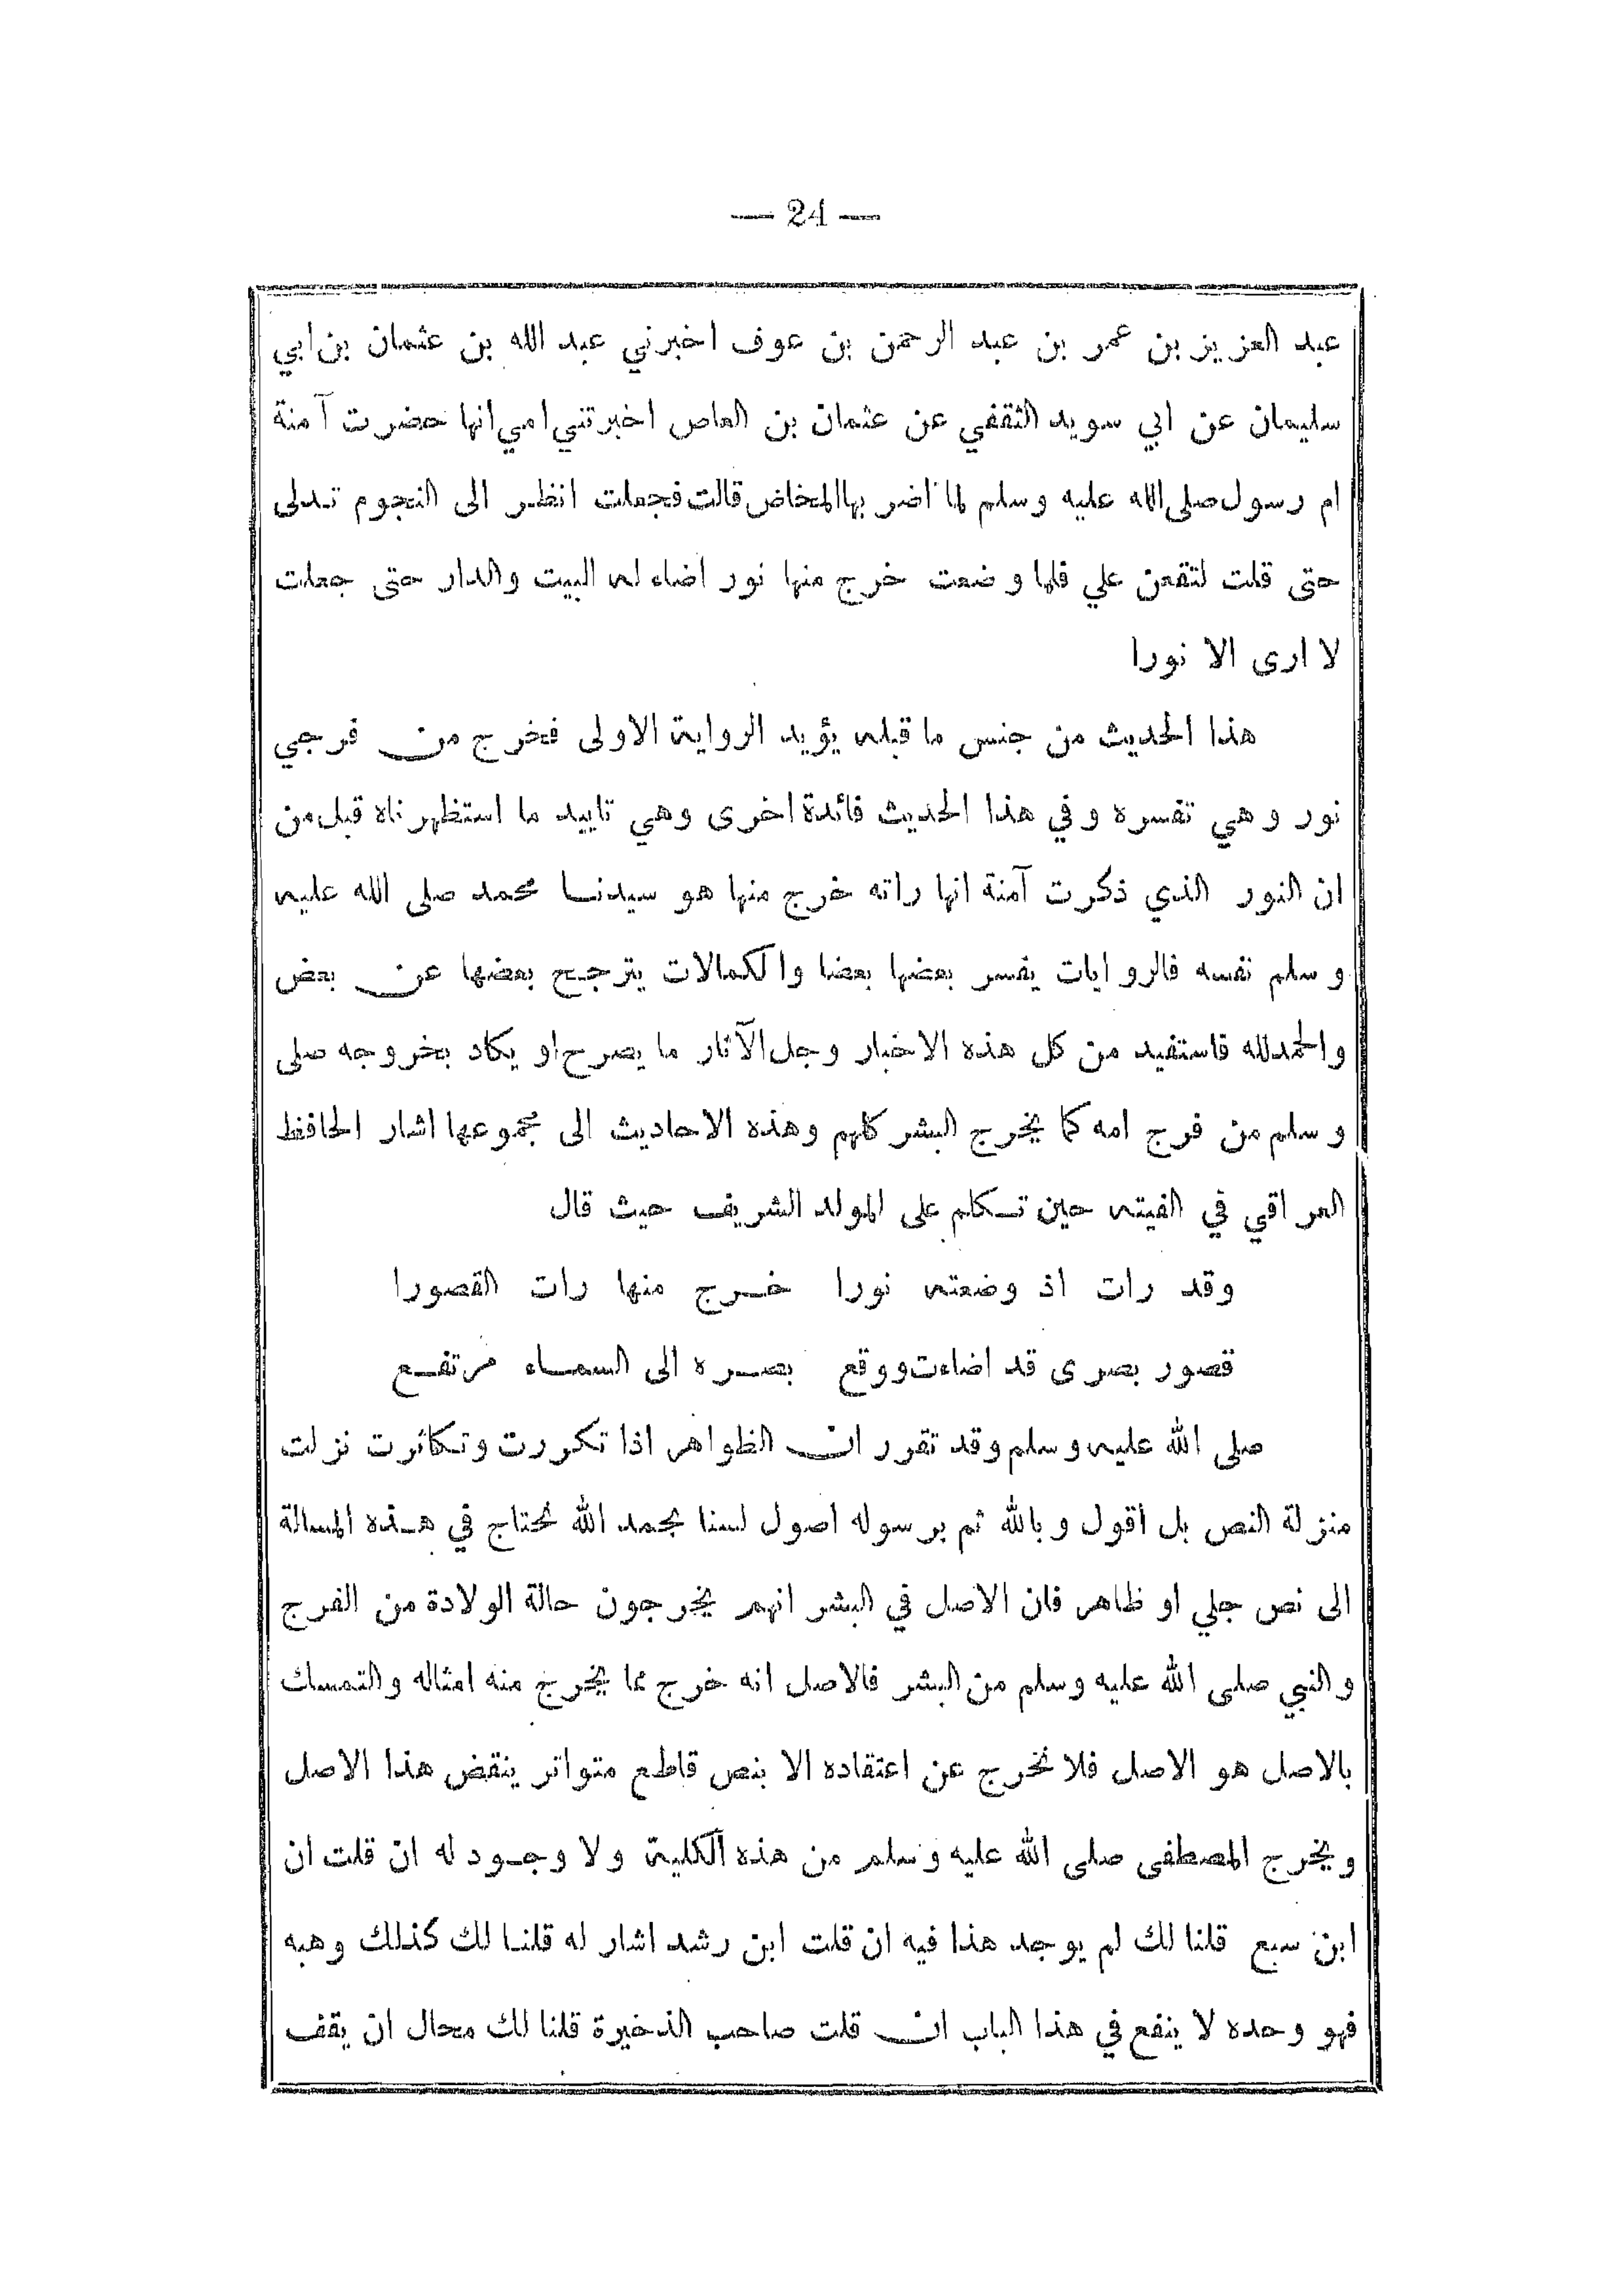 — 24 —
عبد العزيز بن عمر بن عبد الرحمن بن عوف اخبرني عبد الله بن عثمان بن ابي
سليمان عن ابي سويد الثقفي عن عثمان بن العاص اخبرتني امي انها حضرت آمنة
ام رسول صلى الله عليه وسلم لما اضر بها المخاض قالت فجعلت انظر الى النجوم تدلى
حتى قلت لتقعن علي فلما وضعت خرج منها نور اضاء له البيت والدار حتى جعلت
لا ارى الا نورا
هذا الحديث من جنس ما قبله يؤيد الرواية الاولى فخرج من فرجي
نور وهي تفسره وفي هذا الحديث فائدة اخرى وهي تاييد ما استظهرناه قبل من
ان النور الذي ذكرت آمنة انها راته خرج منها هو سيدنا محمد صلى الله عليه
وسلم نفسه فالروايات يفسر بعضها بعضا والكمالات يترجح بعضها عن بعض
والحمد لله فاستفيد من كل هذه الاخبار وجل الآثار ما يصرح او يكاد بخروجه صلى
وسلم من فرج امه كما يخرج البشر كلهم وهذه الاحاديث الى مجموعها اشار الحافظ
العراقي في الفيته حين تكلم على المولد الشريف حيث قال
وقد رات اذ وضعته نورا خرج منها رات القصورا
قصور بصرى قد اضاءت ووقع بصره الى السماء مرتفع
صلى الله عليه وسلم وقد تقرر ان الظواهر اذا تكررت وتكاثرت نزلت
منزلة النص بل اقول وبالله ثم برسوله اصول لسنا بحمد الله نحتاج في هذه المسالة
الى نص جلي او ظاهر فان الاصل في البشر انهم يخرجون حالة الولادة من الفرج
والنبي صلى الله عليه وسلم من البشر فالاصل انه خرج مما يخرج منه امثاله والتمسك
بالاصل هو الاصل فلا نخرج عن اعتقاده الا بنص قاطع متواتر ينقض هذا الاصل
ويخرج المصطفى صلى الله عليه وسلم من هذه الكلية ولا وجود له ان قلت ان
ابن سبع قلنا لك لم يوجد هذا فيه ان قلت ابن رشد اشار له قلنا لك كذلك وهبه
فهو وحده لا ينفع في هذا الباب ان قلت صاحب الذخيرة قلنا لك محال ان يقف